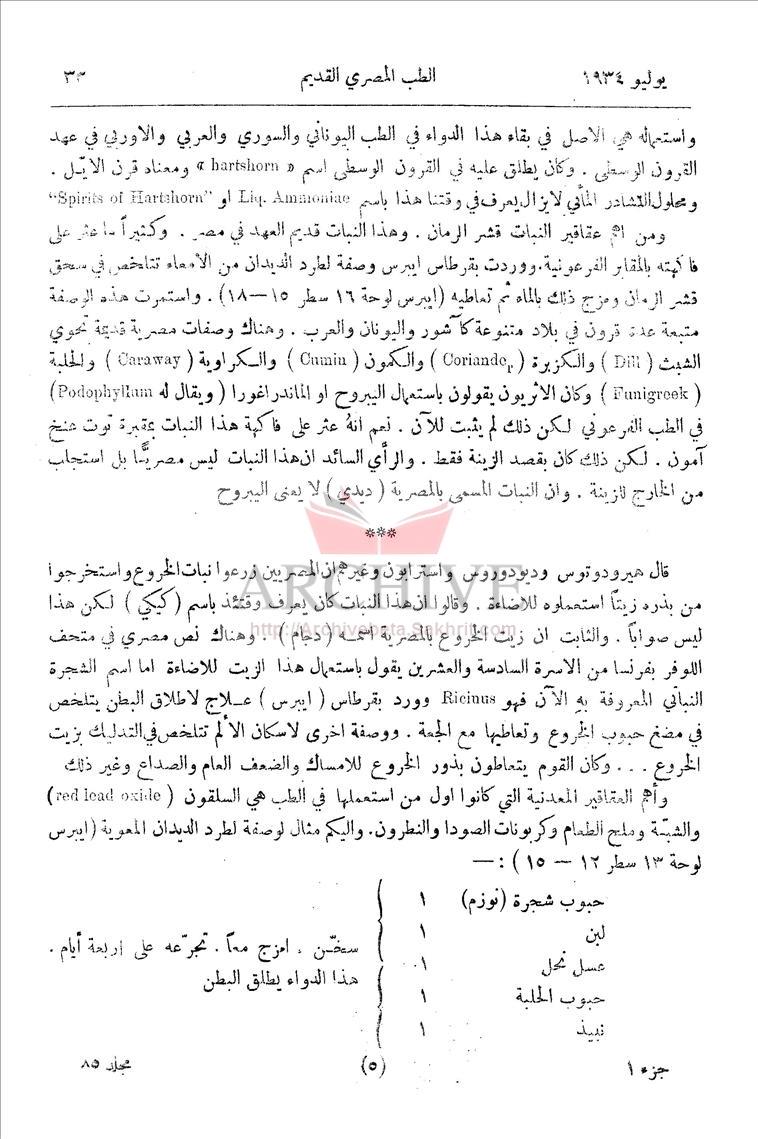 يوليو ١٩٣٤ الطب المصري القديم ٣٣
واستعماله هي الاصل في بقاء هذا الدواء في الطب اليوناني والسوري والعربي والاوربي في عهد
القرون الوسطى . وكان يطلق عليه في القرون الوسطى اسم « hartshorn » ومعناه قرن الايّـل .
ومحلول النشادر المائي لايزال يعرف في وقتنا هذا باسم Liq. Ammoniae او "Spirits of Hartshorn"
ومن اهم عقاقير النبات قشر الرمان . وهذا النبات قديم العهد في مصر . وكثيراً ما عثر على
فاكهته بالمقابر الفرعونية. ووردت بقرطاس ايبرس وصفة لطرد الديدان من الأمعاء تتلخص في سحق
قشر الرمان ومزج ذلك بالماء ثم تعاطيه (ايبرس لوحة ١٦ سطر ١٥—١٨) . واستمرت هذه الوصفة
متبعة عدة قرون في بلاد متنوعة كآشور واليونان والعرب . وهناك وصفات مصرية قديمة تحوي
الشبث ( Dill ) والكزبرة ( Coriander ) والكمون ( Cumin ) والكراوية ( Caraway ) والحلبة
( Funigreek ) وكان الأثريون يقولون باستعمال اليبروح او الماندراغورا ( ويقال له Podophyllum)
في الطب الفرعوني لكن ذلك لم يثبت للآن . نعم انهُ عثر على فاكهة هذا النبات بمقبرة توت عنخ
آمون . لكن ذلك كان بقصد الزينة فقط . والرأي السائد ان هذا النبات ليس مصريًّا بل استجلب
من الخارج للزينة . وان النبات المسمى بالمصرية ( ديدي ) لا يعنى اليبروح
***
قال هيرودوتوس وديودوروس واسترابون وغيرهم ان المصريين زرعوا نبات الخروع واستخرجوا
من بذره زيتاً استعملوه للاضاءة . وقالوا ان هذا النبات كان يعرف وقتئذ باسم ( كيكي ) لكن هذا
ليس صواباً . والثابت ان زيت الخروع بالمصرية اسمه ( دجام ) . وهناك نص مصري في متحف
اللوفر بفرنسا من الاسرة السادسة والعشرين يقول باستعمال هذا الزيت للاضاءة اما اسم الشجرة
النباتي المعروفة به الآن فهو Ricinus وورد بقرطاس ( ايبرس ) عـلاج لاطلاق البطن يتلخص
في مضغ حبوب الخروع وتعاطيها مع الجعة . ووصفة اخرى لاسكان الألم تتلخص في التدليك بزيت
الخروع . . . وكان القوم يتعاطون بذور الخروع للامساك والضعف العام والصداع وغير ذلك
وأهم العقاقير المعدنية التي كانوا اول من استعملها في الطب هي السلقون ( red lead oxide)
والشبّـة وملح الطعام وكربونات الصودا والنطرون. واليكم مثال لوصفة لطرد الديدان المعوية (ايبرس
لوحة ١٣ سطر ١٢ — ١٥ ) : —
حبوب شجرة (نوزم) ١
لبن ١
عسل نحل ١
حبوب الحلبة ١
نبيذ ١
سخّـن . امزج معاً . تجرّعه على اربعة أيام .
هذا الدواء يطلق البطن
جزء ١ (٥) مجلد ٨٥
ARCHIVE
http://Archivebeta.Sakhrit.com